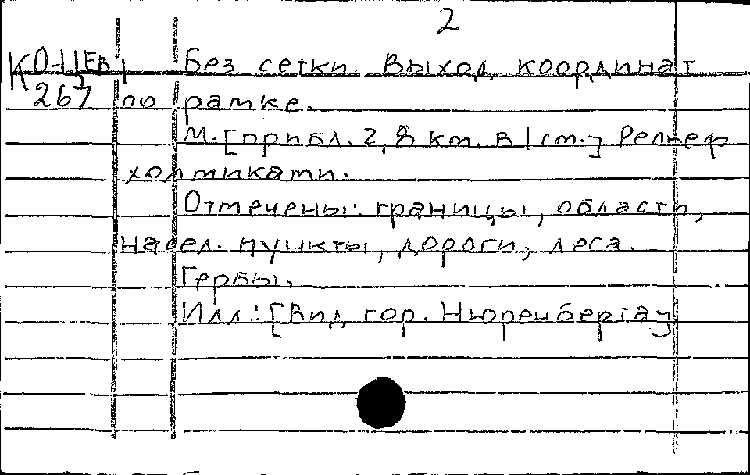 2
К 0-Цев Без сетки. Выход координат
3
267 по рамке.
М. [прибл. 2,8 км. в 1 см.] Рельеф
холмиками.
Отмечены: границы, области,
насел. пункты, дороги, леса.
Гербы.
Илл.: [Вид гор. Нюренберга]